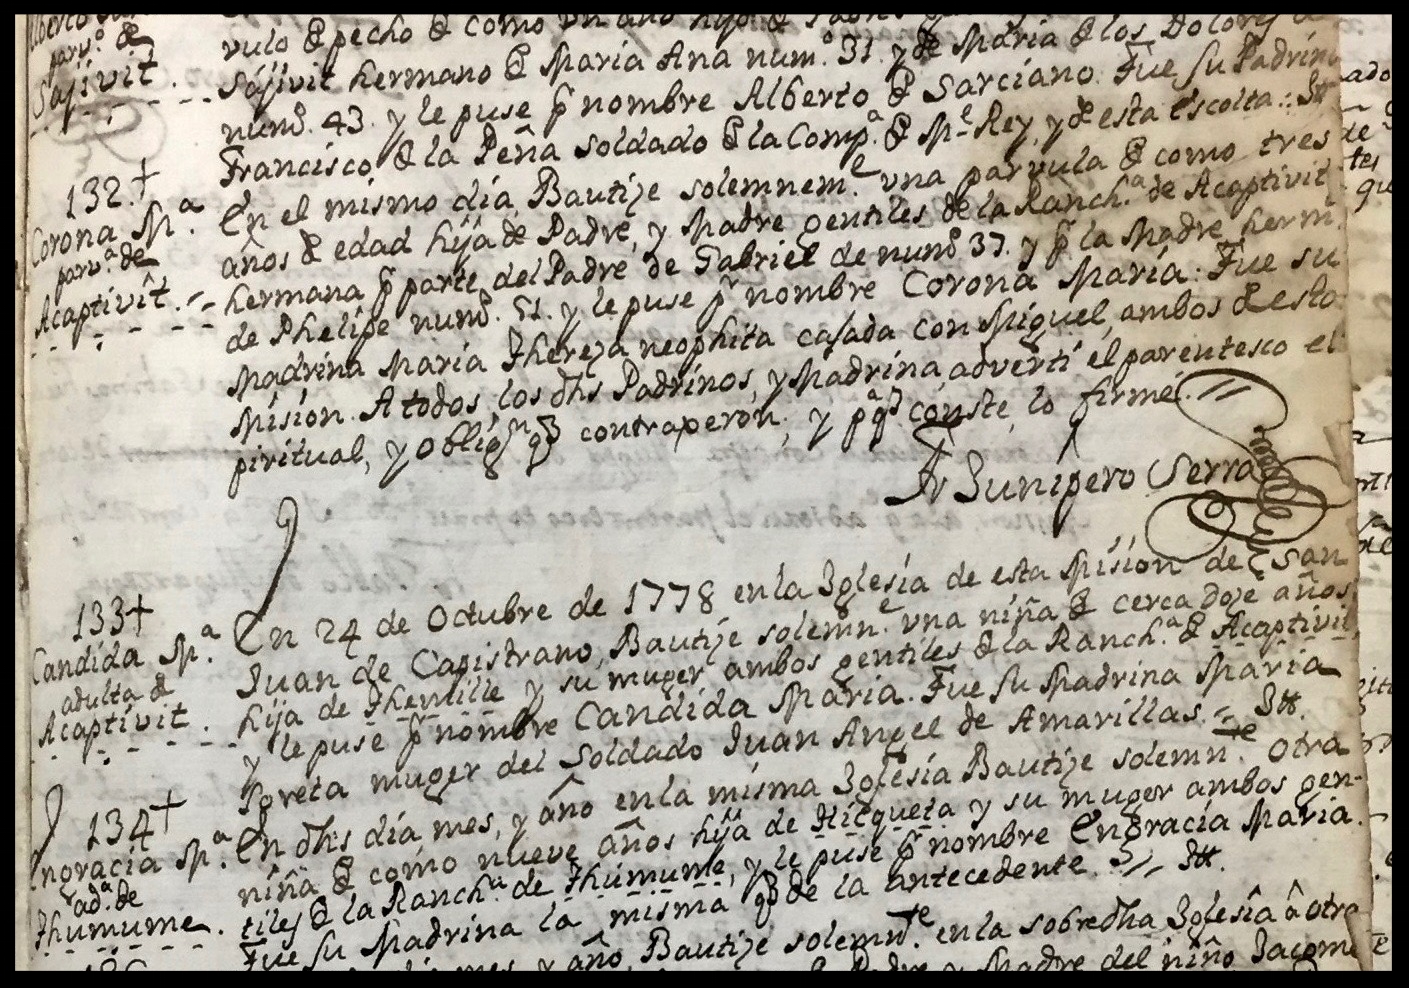 Alberto
parv.º de
Sajivit.
vulo de pecho de como un año hijo de
Sajivit hermano de Maria Ana num.º 31. y de Maria de los Dolores
numº. 43. y le puse pr nombre Alberto de Sarciano. Fue su Padrino
Francisco de la Peña soldado de la Comp.ª de Sp.e Rey, y de esta Escolta.
132.+
Corona Mª.
parv.ª de
Acaptivit.
En el mismo dia Bautize solemnem.e una parvula de como tres
años de edad hija de Padre, y Madre gentiles de la Ranch.ª de Acaptivit
hermana pr parte del Padre de Gabriel de numº 37. y pr la Madre herm.
de Phelipe numº. 51. y le puse pr nombre Corona Maria: Fue su
Madrina Maria Thereza neophita casada con Miguel, ambos de esta
Mision. A todos los dhs Padrinos, y Madrina adverti el parentesco es-
piritual, y obligºn qe contraxeron, y pª qe conste, lo firmé.
Fr Junipero Serra
133+
Candida Mª.
adulta de
Acaptivit.
En 24 de Octubre de 1778 en la Iglesia de esta Mision de San
Juan de Capistrano, Bautize solemn.e una niña de cerca doze años
hija de Themilile y su muger ambos gentiles de la Ranch.ª de Acaptivit,
y le puse pr nombre Candida Maria. Fue su Madrina Maria
Loreta muger del Soldado Juan Angel de Amarillas.
134+
Engracia Mª.
ad.ª de
Thumume.
En dhs dia mes, y año en la misma Iglesia Bautize solemn.te otra
niña de como nueve años hija de Hicqueta y su muger ambos gen-
tiles de la Ranch.ª de Thumume, y le puse pr nombre Engracia Maria.
Fue su Madrina la misma qe de la antecedente.
mes, y año Bautize solemn.te en la sobredha Iglesia â otra
Padre y Madre del niño Jacome